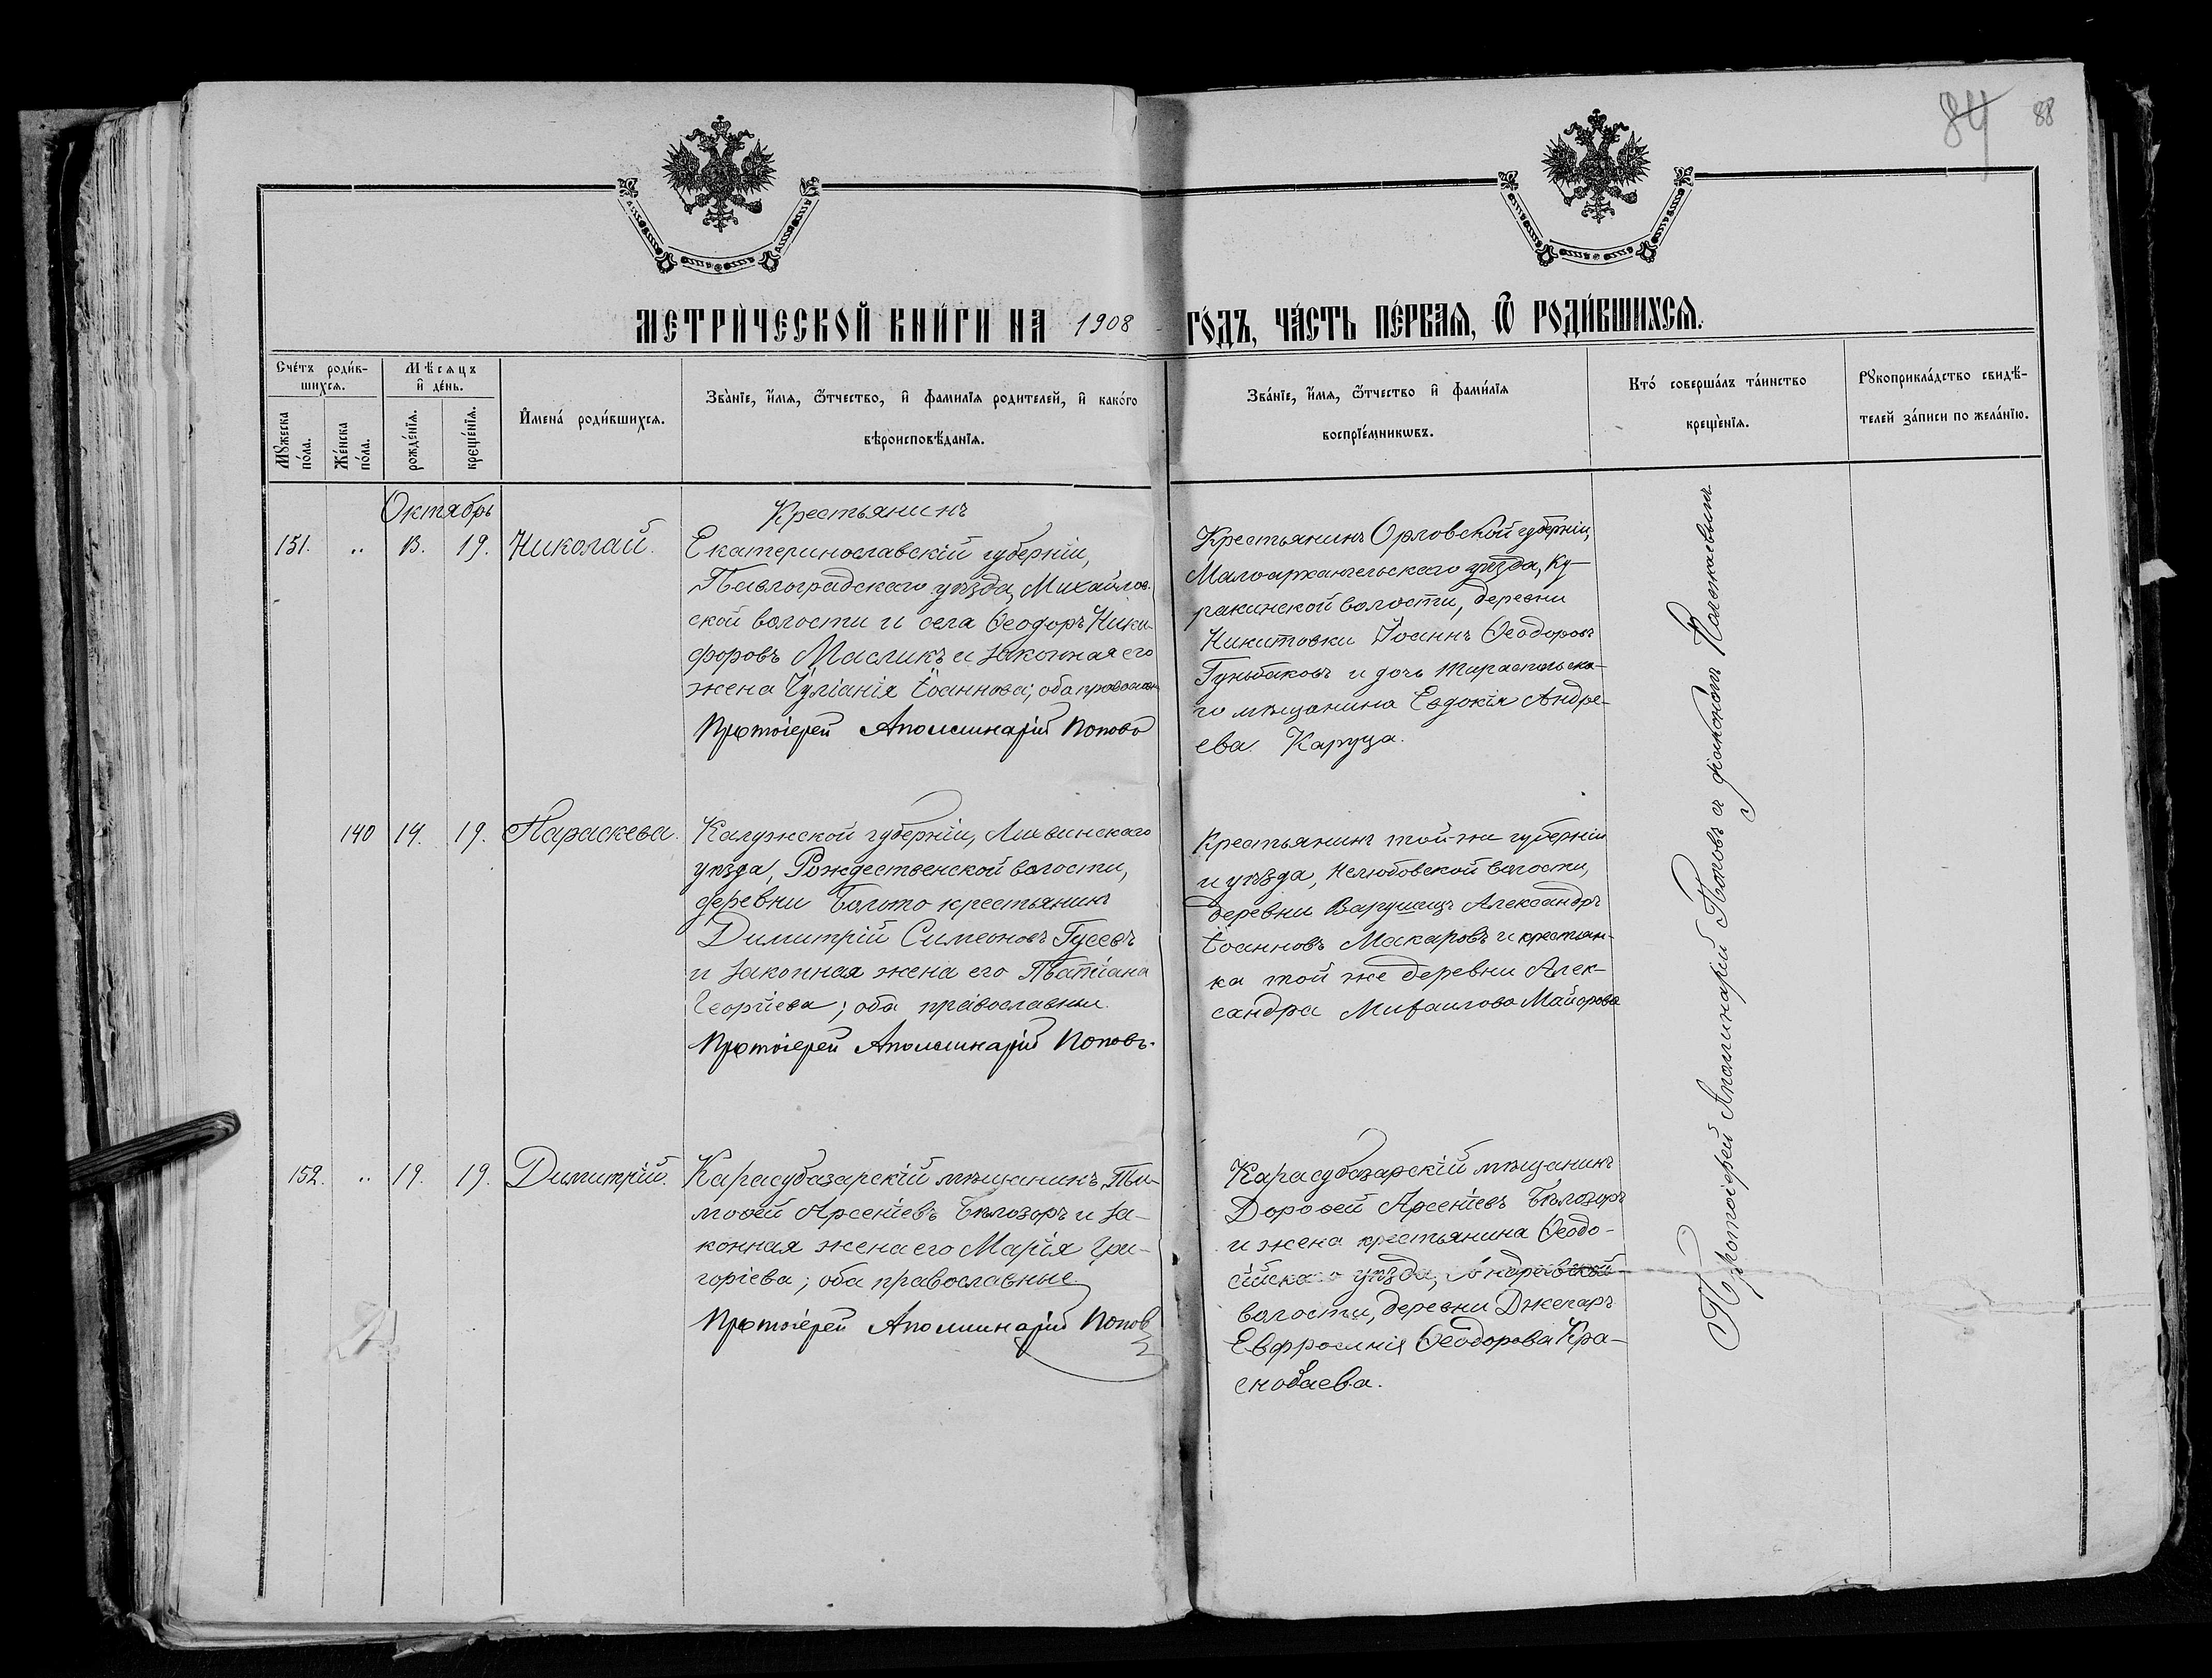 84 88
МЕТРИ́ЧЕСКОЙ КНИ́ГИ НА 1908 ГО́ДЪ, ЧА́СТЬ ПЕ́РВАЯ, Ѿ РОДИ́ВШИХСЯ.
Сче́тъ роди́в-
шихся.
Мѣсяцъ
и де́нь.
Мужеска
по́ла.
Же́нска
по́ла.
рожде́нїя.
креще́нїя.
Имена́ роди́вшихся.
Зва́нїе, и́мя, ѿтчество, и фами́лїя родителей, и како́го
вѣроисповѣ́данїя.
Зва́нїе, и́мя, ѿтчество и фами́лїя
воспрїе́мникѡвъ.
Кто́ соверша́лъ та́инство
креще́нїя.
Рукоприкла́дство свидѣ́-
телей за́писи по жела́нїю.
Октябрь
151. „ 13. 19. Николай.
Крестьянинъ
Екатеринославскій губерніи,
Павлоградскаго уѣзда, Михайлов-
ской волости и села Ѳеодоръ Ники-
форовъ Масликъ и законная его
жена Іуліанія Іоаннова; оба православн
Протоіерей Аполлинарій Поповъ
Крестьянинъ Орловской губерніи,
Малоархангельскаго уѣзда, Ку-
ракинской волости, деревни
Никитовки Іоаннъ Ѳеодоровъ
и дочь Тираспольска-
го мѣщанина Евдокія Андре-
ева Каруца.
140 14. 19. Параскева.
Калужской губерніи, Лихвинскаго
уѣзда, Рождественской волости,
деревни Болото крестьянинъ
Димитрій Симеоновъ Гусевъ
и законная жена его Татіана
Георгіева; оба православные.
Протоіерей Аполлинарій Поповъ.
Крестьянинъ той-же губерніи
и уѣзда, Нелюбовской волости,
деревни Варушицъ Александръ
Іоанновъ Макаровъ и крестьян-
ка той же деревни Алек-
сандра Михаилова Майорова
152. „ 19. 19. Димитрій.
Карасубазарскій мѣщанинъ Ти-
моѳей Арсеніевъ Бѣлозоръ и за-
конная жена его Марія Гри-
горіева; оба православные.
Протоіерей Аполлинарій Попов
Карасубазарскій мѣщанинъ
Дороѳей Арсеніевъ Бѣлозоръ
и жена крестьянина Ѳеодо-
сійскаго уѣзда, Андреевской
волости, деревни Джепаръ
Евфросинія Ѳеодорова Кра-
снобаева.
Протоіерей Аполлинарій Поповъ съ діакономъ